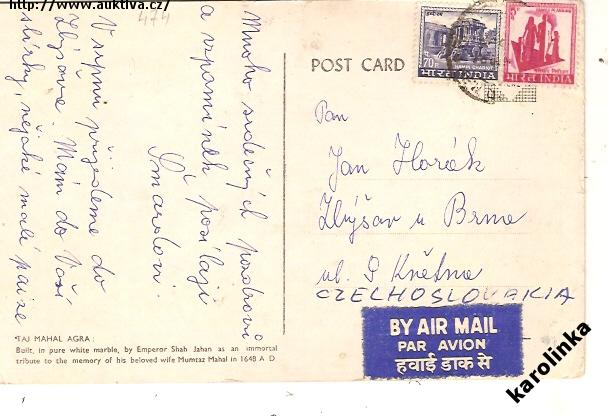 https://www.auktiva.cz/
474
Mnoho srdečných pozdravů
a vzpomínek posílají
Smarslovi.
V srpnu přijedeme do
Zbýšova. Mám do Vaší
sbírky, nějaké malé peníze
TAJ MAHAL AGRA :
Built, in pure white marble, by Emperor Shah Jahan as an immortal
tribute to the memory of his beloved wife Mumtaz Mahal in 1648 A D
POST CARD
70
HAMPI CHARIOT
भारत INDIA
भारत INDIA
Pan
Jan Horák
Zbýšov u Brna
ul. 9 Května
CZELHOSLOVAKIA
BY AIR MAIL
PAR AVION
हवाई डाक से
karolinka